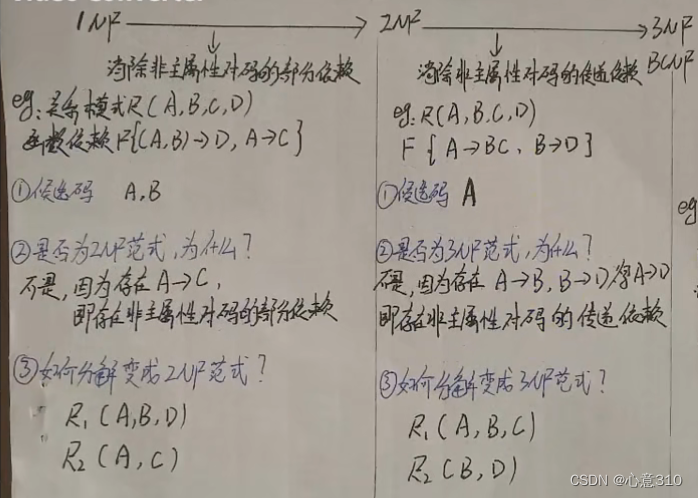 1NF → 2NF → 3NF
BCNF
消除非主属性对码的部分依赖
eg:关系模式R(A,B,C,D)
函数依赖F{(A,B)→D, A→C}
①候选码 A,B
②是否为2NF范式,为什么?
不是,因为存在A→C,
即存在非主属性对码的部分依赖
③如何分解变成2NF范式?
R₁(A,B,D)
R₂(A,C)
消除非主属性对码的传递依赖
eg:R(A,B,C,D)
F{A→BC, B→D}
①候选码 A
②是否为3NF范式,为什么?
不是,因为存在A→B,B→D得A→D
即存在非主属性对码的传递依赖
③如何分解变成3NF范式?
R₁(A,B,C)
R₂(B,D)
eg
CSDN @心意310